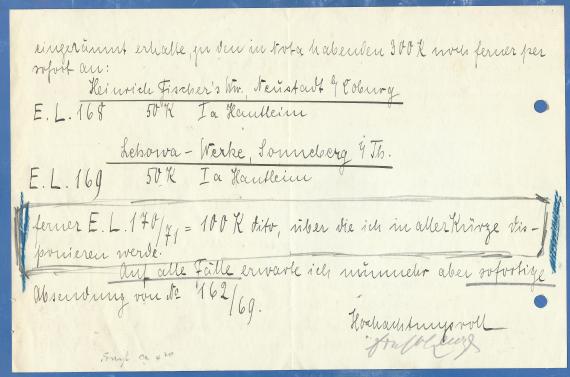 eingeräumt erhalte, zu den in Nota habenden 300 K noch ferner per
sofort an:
Heinrich Fischer's Ww. Neustadt b/ Coburg
E. L. 168 50 K Ia Hautleim
Lehowa - Werke, Sonneberg i/ Th.
E. L. 169 50 K Ia Hautleim
ferner E. L. 170/71 = 100 K dito, über die ich in aller Kürze dis-
ponieren werde.
Auf alle Fälle erwarte ich nunmehr aber sofortige
Absendung von No 162/69.
Hochachtungsvoll